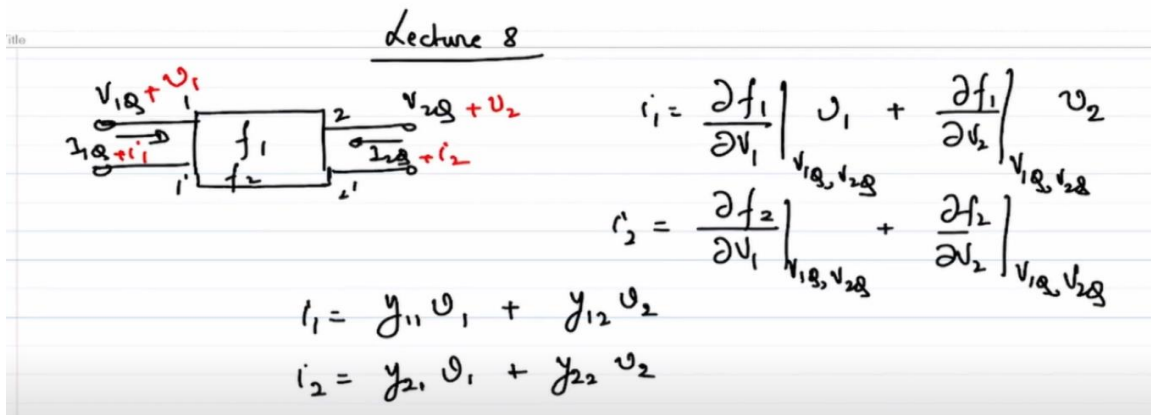 Title
Lecture 8
V₁Q + v₁ 1 2 V₂Q + v₂
I₁Q + i₁ f₁ I₂Q + i₂
1' f₂ 2'
i₁ = ∂f₁/∂V₁ |V₁Q, V₂Q v₁ + ∂f₁/∂V₂ |V₁Q, V₂Q v₂
i₂ = ∂f₂/∂V₁ |V₁Q, V₂Q + ∂f₂/∂V₂ |V₁Q, V₂Q
i₁ = y₁₁ v₁ + y₁₂ v₂
i₂ = y₂₁ v₁ + y₂₂ v₂